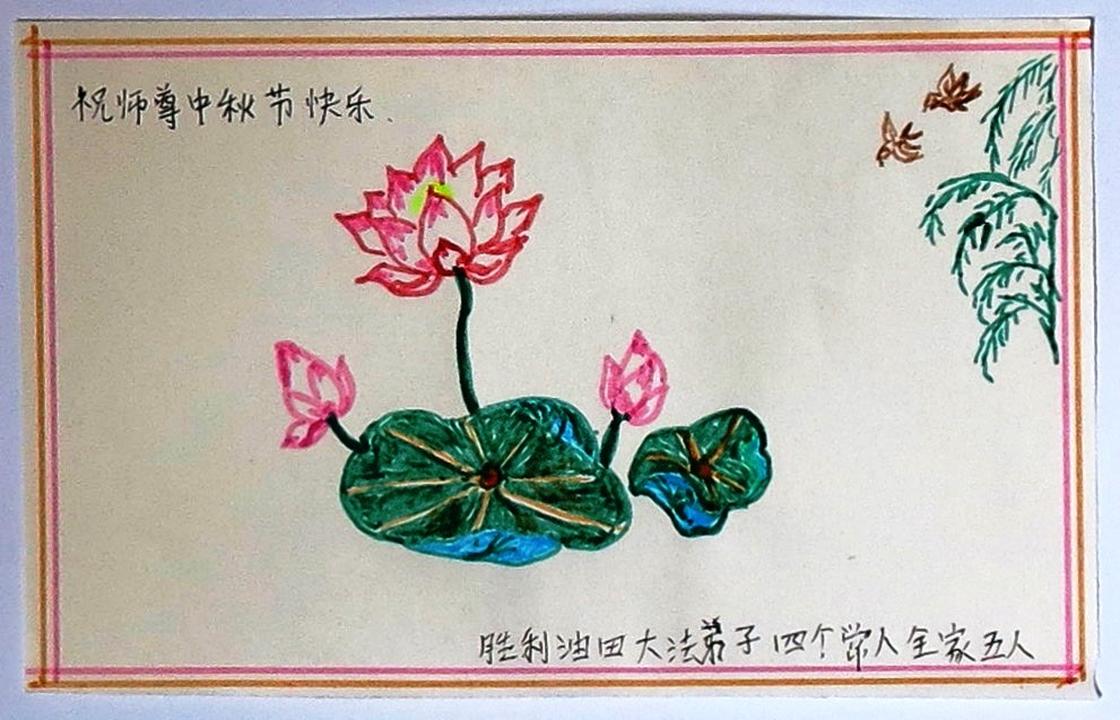 祝师尊中秋节快乐.
胜利油田大法弟子 四个常人全家五人